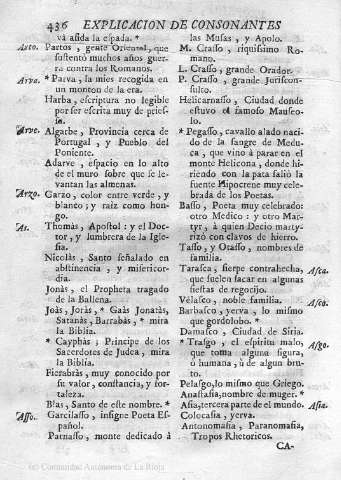 436 EXPLICACION DE CONSONANTES
và asida la espada. *
Auto. Partos, gente Oriental, que
sustentò muchos años guerra
contra los Romanos.
Arva. * Parva, la mies recogida en
un monton de la era.
Harba, escriptura no legible
por ser escrita muy de priessa.
Arve. Algarbe, Provincia cerca de
Portugal, y Pueblo del
Poniente.
Adarve, espacio en lo alto
de el muro sobre que se levantan
las almenas.
Arzo. Garzo, color entre verde, y
blanco; y raíz como hongo.
As. Thomàs, Apostol: y el Doctor,
y lumbrera de la Iglesia.
Nicolàs, Santo señalado en
abstinencia, y misericordia.
Jonàs, el Propheta tragado
de la Ballena.
Joàs, Joràs, * Gaàs Jonatàs,
Satanàs, Barrabàs, * mira
la Biblia.
* Cayphàs; Principe de los
Sacerdotes de Judea, mira
la Biblia.
Fierabràs, muy conocido por
su valor, constancia, y fortaleza.
Blas, Santo de este nombre. *
Asso. Garcilasso, insigne Poeta Español.
Parnasso, monte dedicado à
las Musas, y Apolo.
M. Crasso, riquissimo Romano.
L. Crasso, grande Orador.
P. Crasso, grande Jurisconsulto.
Helicarnasso, Ciudad donde
estuvo el famoso Mauseolo.
* Pegasso, cavallo alado nacido
de la sangre de Meduca,
que vino à parar en el
monte Helicona, donde hiriendo
con la pata saliò la
fuente Hipocrene muy celebrada
de los Poetas.
Basso, Poeta muy celebrado:
otro Medico: y otro Martyr,
à quien Decio martyrizó
con clavos de hierro.
Tasso, y Otasso, nombres de
familia.
Tarasca, sierpe contrahecha, Asca.
que suelen sacar en algunas
fiestas de regocijo.
Vélasco, noble familia. Asco.
Barbasco, yerva, lo mismo
que gordolobo. *
Damasco, Ciudad de Siria.
* Trasgo, el espiritu malo, Asgo.
que toma alguna figura,
ò humana, ù de algun bruto.
Pelasgo, lo mismo que Griego.
Anastasia, nombre de muger. *
Asia, tercera parte del mundo. Asia.
Colocasia, yerva.
Antonomasia, Paranomasia,
Tropos Rhetoricos.
CA-
(c) Comunidad Autónoma de La Rioja